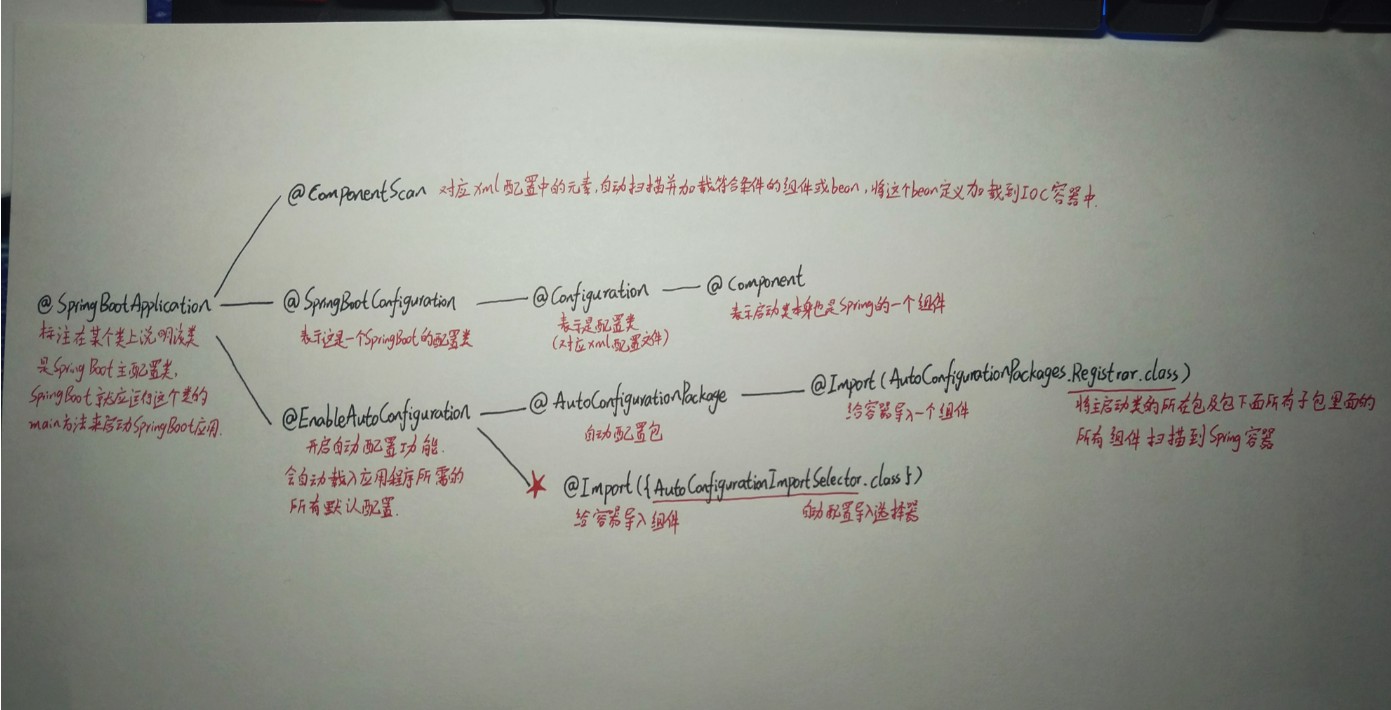 @ComponentScan 对应xml配置中的元素,自动扫描并加载符合条件的组件或bean,将这个bean定义加载到IOC容器中.
@SpringBootApplication
标注在某个类上说明该类
是Spring Boot主配置类,
SpringBoot就应运行这个类的
main方法来启动SpringBoot应用.
@SpringBootConfiguration
表示这是一个SpringBoot的配置类
@Configuration
表示是配置类
(对应xml配置文件)
@Component
表示启动类本身也是Spring的一个组件
@EnableAutoConfiguration
开启自动配置功能.
会自动载入应用程序所需的
所有默认配置.
@AutoConfigurationPackage
自动配置包
@Import(AutoConfigurationPackages.Registrar.class)
给容器导入一个组件
将主启动类的所在包及包下面所有子包里面的
所有组件扫描到Spring容器
@Import({AutoConfigurationImportSelector.class})
给容器导入组件
自动配置导入选择器